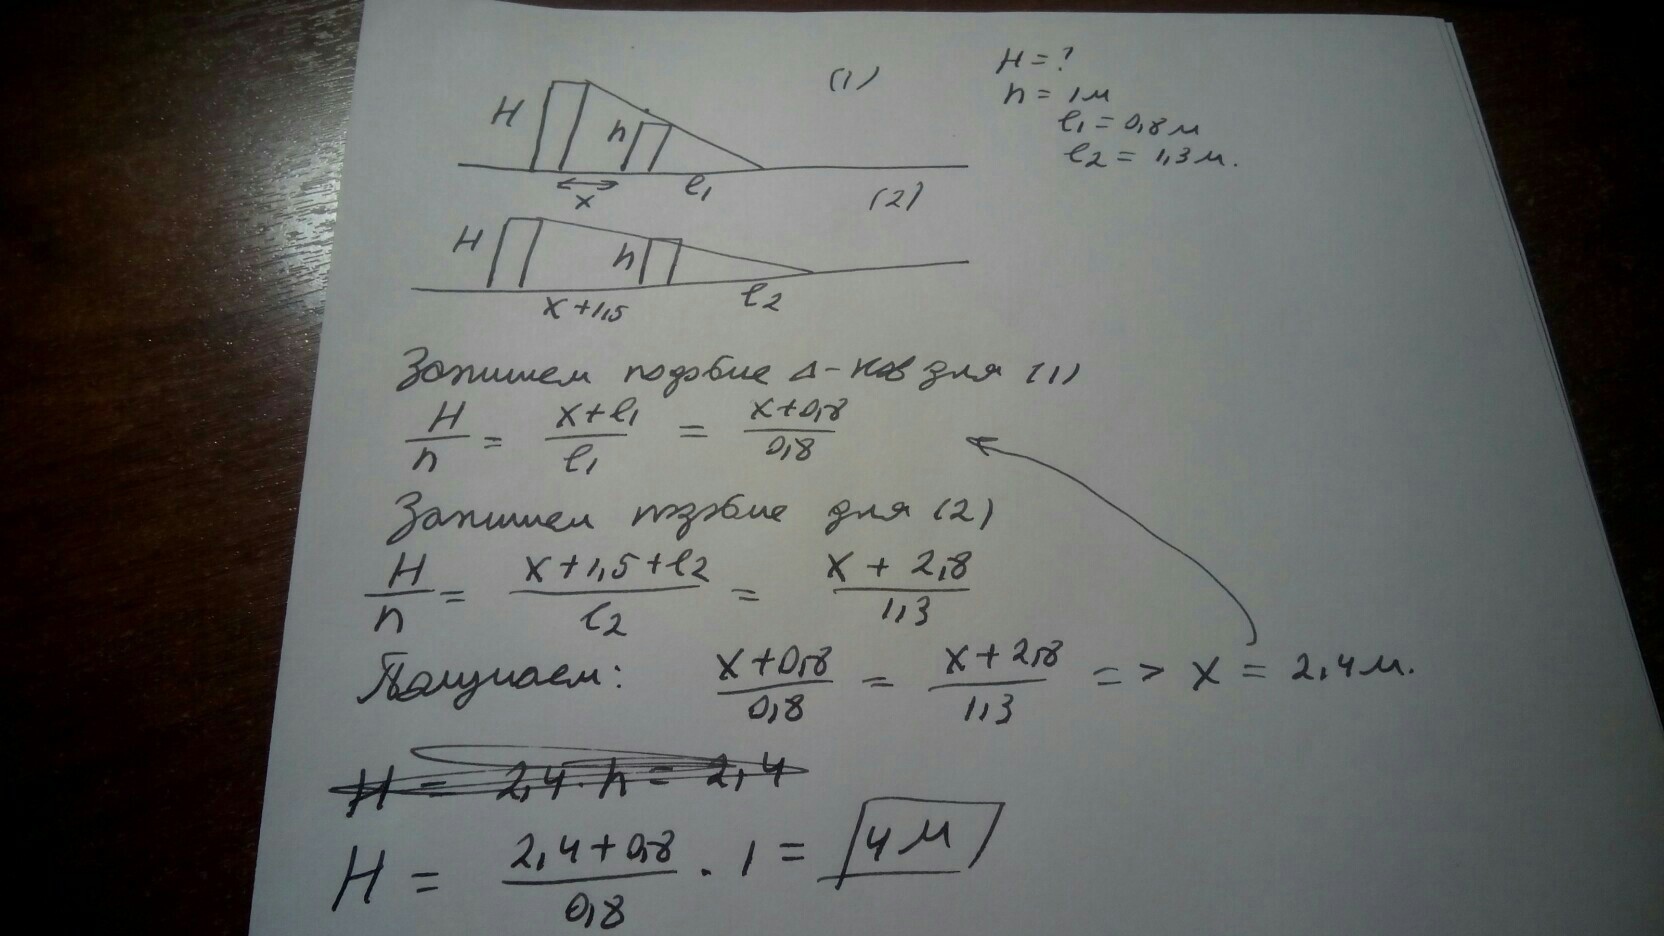 (1)
H
h
x
l₁
H = ?
h = 1м
l₁ = 0,8м
l₂ = 1,3м.
(2)
H
h
x+1,5
l₂
Запишем подобие Δ-ков для (1)
H/h = (x+l₁)/l₁ = (x+0,8)/0,8
Запишем подобие для (2)
H/h = (x+1,5+l₂)/l₂ = (x+2,8)/1,3
Получаем: (x+0,8)/0,8 = (x+2,8)/1,3 => x = 2,4м.
H = 2,4·h = 2,4
H = (2,4+0,8)/0,8 · 1 = 4м